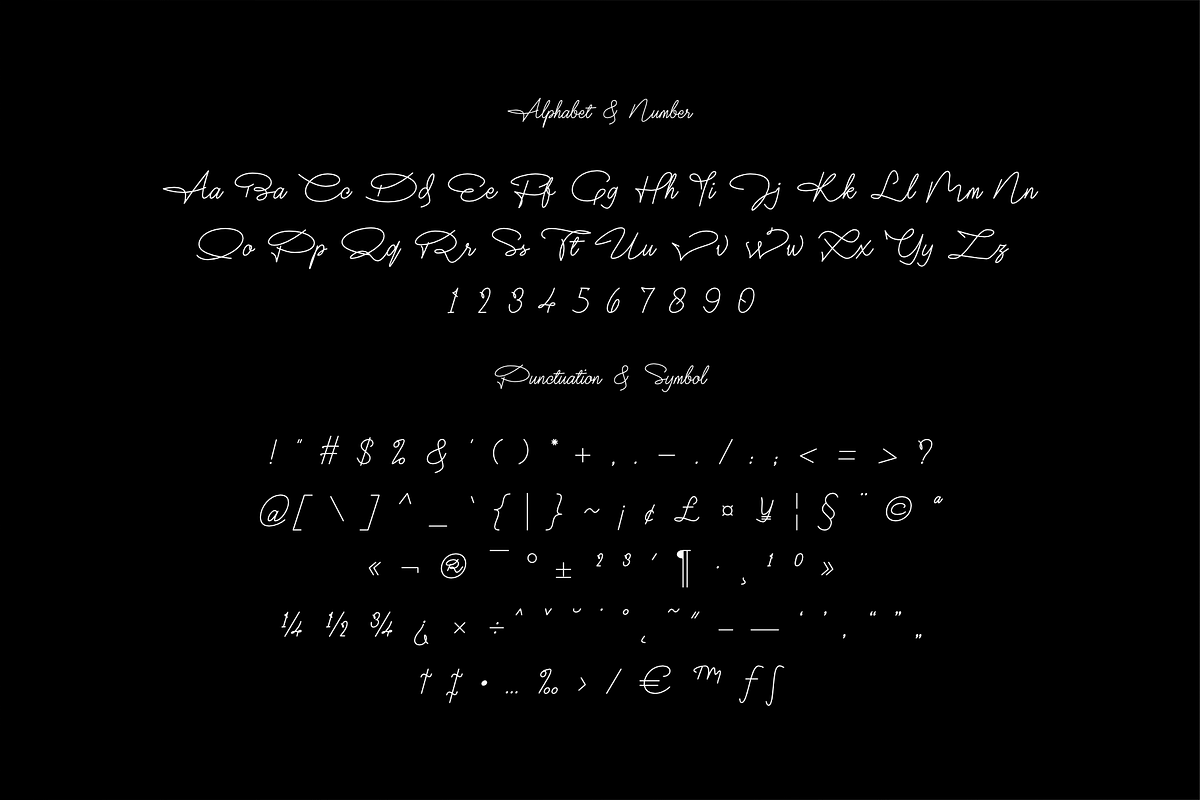 Alphabet & Number
Aa Ba Cc Dd Ee Ff Gg Hh Ii Jj Kk Ll Mm Nn
Oo Pp Qq Rr Ss Tt Uu Vv Ww Xx Yy Zz
1 2 3 4 5 6 7 8 9 0
Punctuation & Symbol
! " # $ % & ' ( ) * + , . - . / : ; < = > ?
@ [ \ ] ^ _ ` { | } ~ ¡ ¢ £ ¤ ¥ ¦ § ¨ © ª
« ¬ ® ¯ ° ± ² ³ ´ ¶ · ¸ ¹ º »
¼ ½ ¾ ¿ × ÷ ˆ ˇ ˘ ˙ ˚ ˛ ˜ ˝ – — ‘ ’ ‚ “ ” „
† ‡ • … ‰ › ⁄ € ™ ƒ ∫